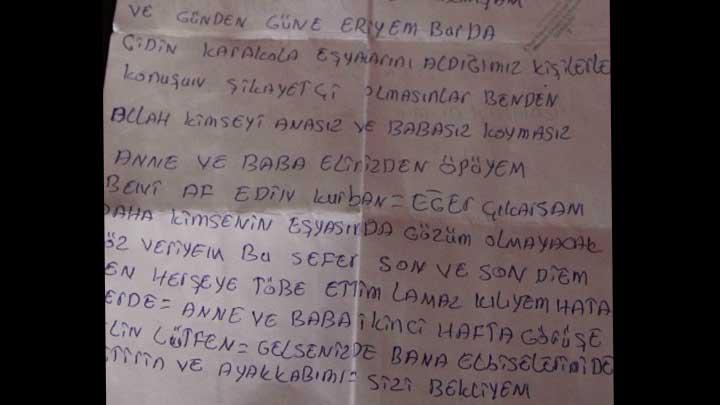 VE GÜNDEN GÜNE ERİYEM BURDA
GİDİN KARAKOLA EŞYALARINI ALDIĞIMIZ KİŞİLERLE
KONUŞUN ŞİKAYETÇİ OLMASINLAR BENDEN
ALLAH KİMSEYİ ANASIZ VE BABASIZ KOYMASIZ
ANNE VE BABA ELİNİZDEN ÖPÖYEM
BENİ AF EDİN KURBAN = EĞER ÇIKARSAM
DAHA KİMSENİN EŞYASINDA GÖZÜM OLMAYACAK
SÖZ VERİYEM BU SEFER SON VE SON DİEM
BEN HERŞEYE TÖBE ETTİM LAMAZ KILIYEM HATA
ERDE = ANNE VE BABA İKİNCİ HAFTA GÖRÜŞE
GELİN LÜTFEN = GELSENİZDE BANA ELBİSELERİMİDE
GETİRİN VE AYAKKABIMI = SİZİ BEKLİYEM